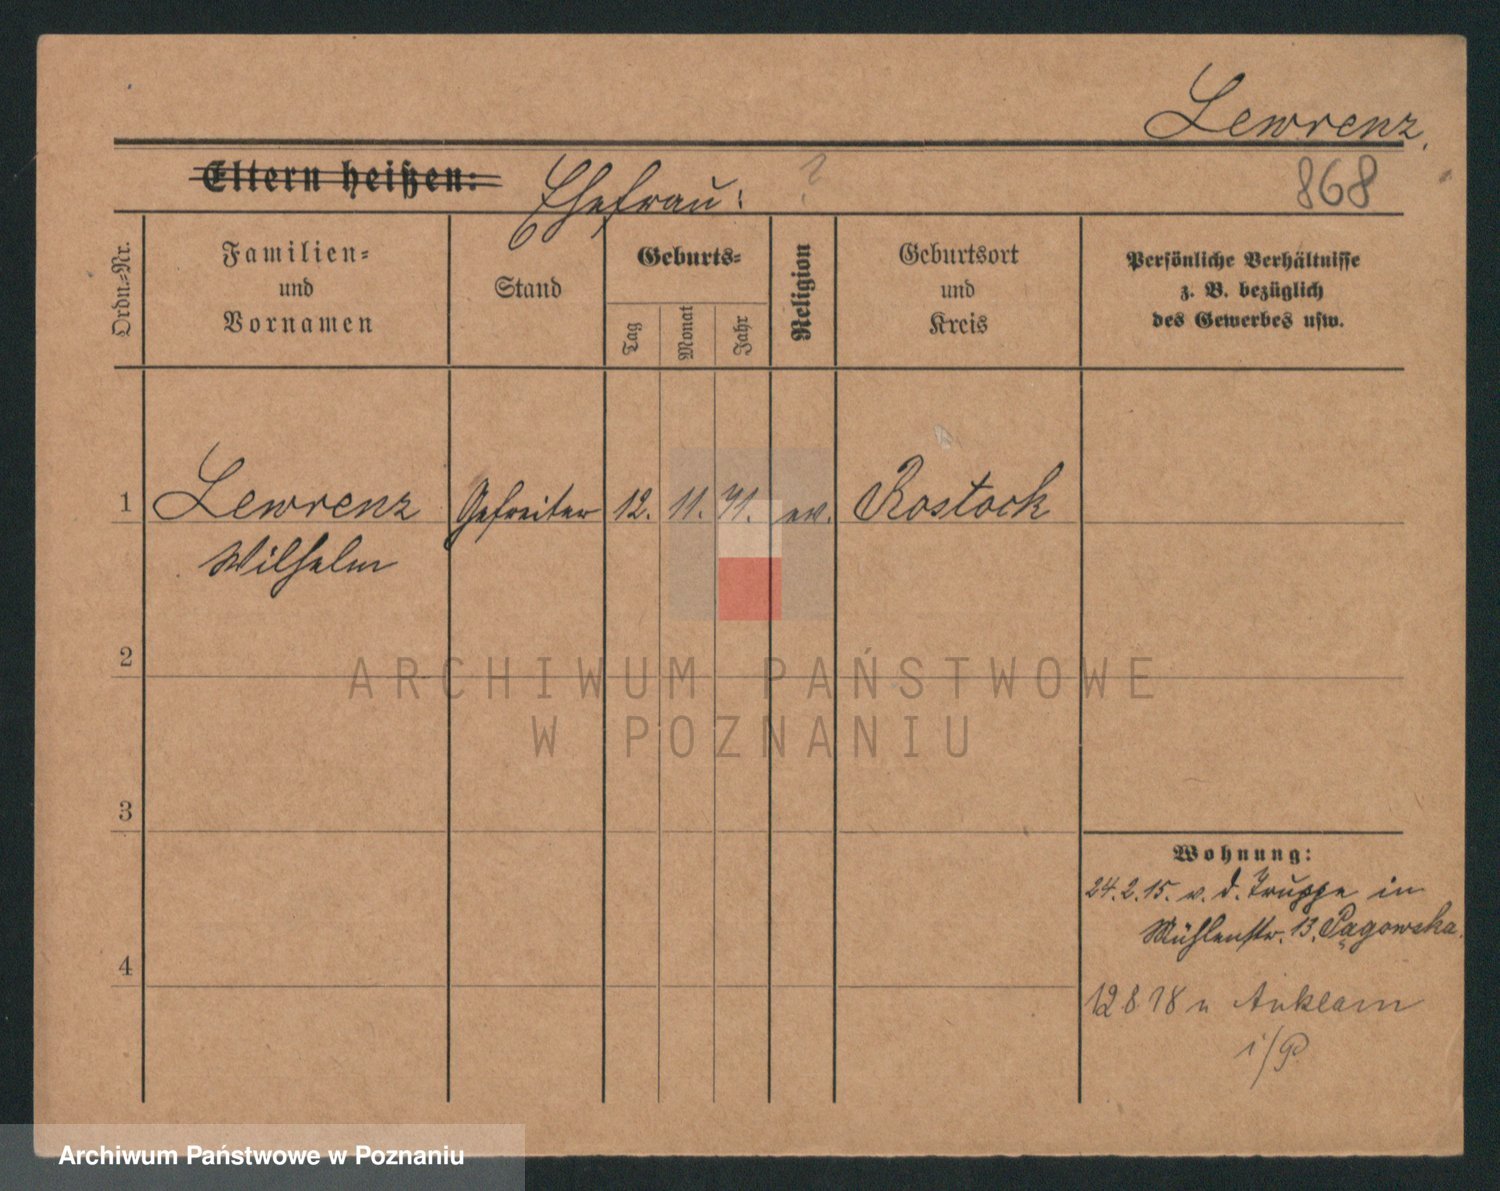 Lewrenz.
868
Eltern heißen: Ehefrau: ?
Ordn.-Nr.
Familien-
und
Vornamen
Stand
Geburts-
Tag
Monat
Jahr
Religion
Geburtsort
und
Kreis
Persönliche Verhältnisse
z. B. bezüglich
des Gewerbes usw.
1 Lewrenz Gefreiter 12. 11. 71. ev. Rostock
Wilhelm
2
3
4
Wohnung:
24.2.15. v. d. Truppe in
Mühlenstr. 13. Pągowska.
12 8 18 n Anklam
i/P.
ARCHIWUM PAŃSTWOWE
W POZNANIU
Archiwum Państwowe w Poznaniu